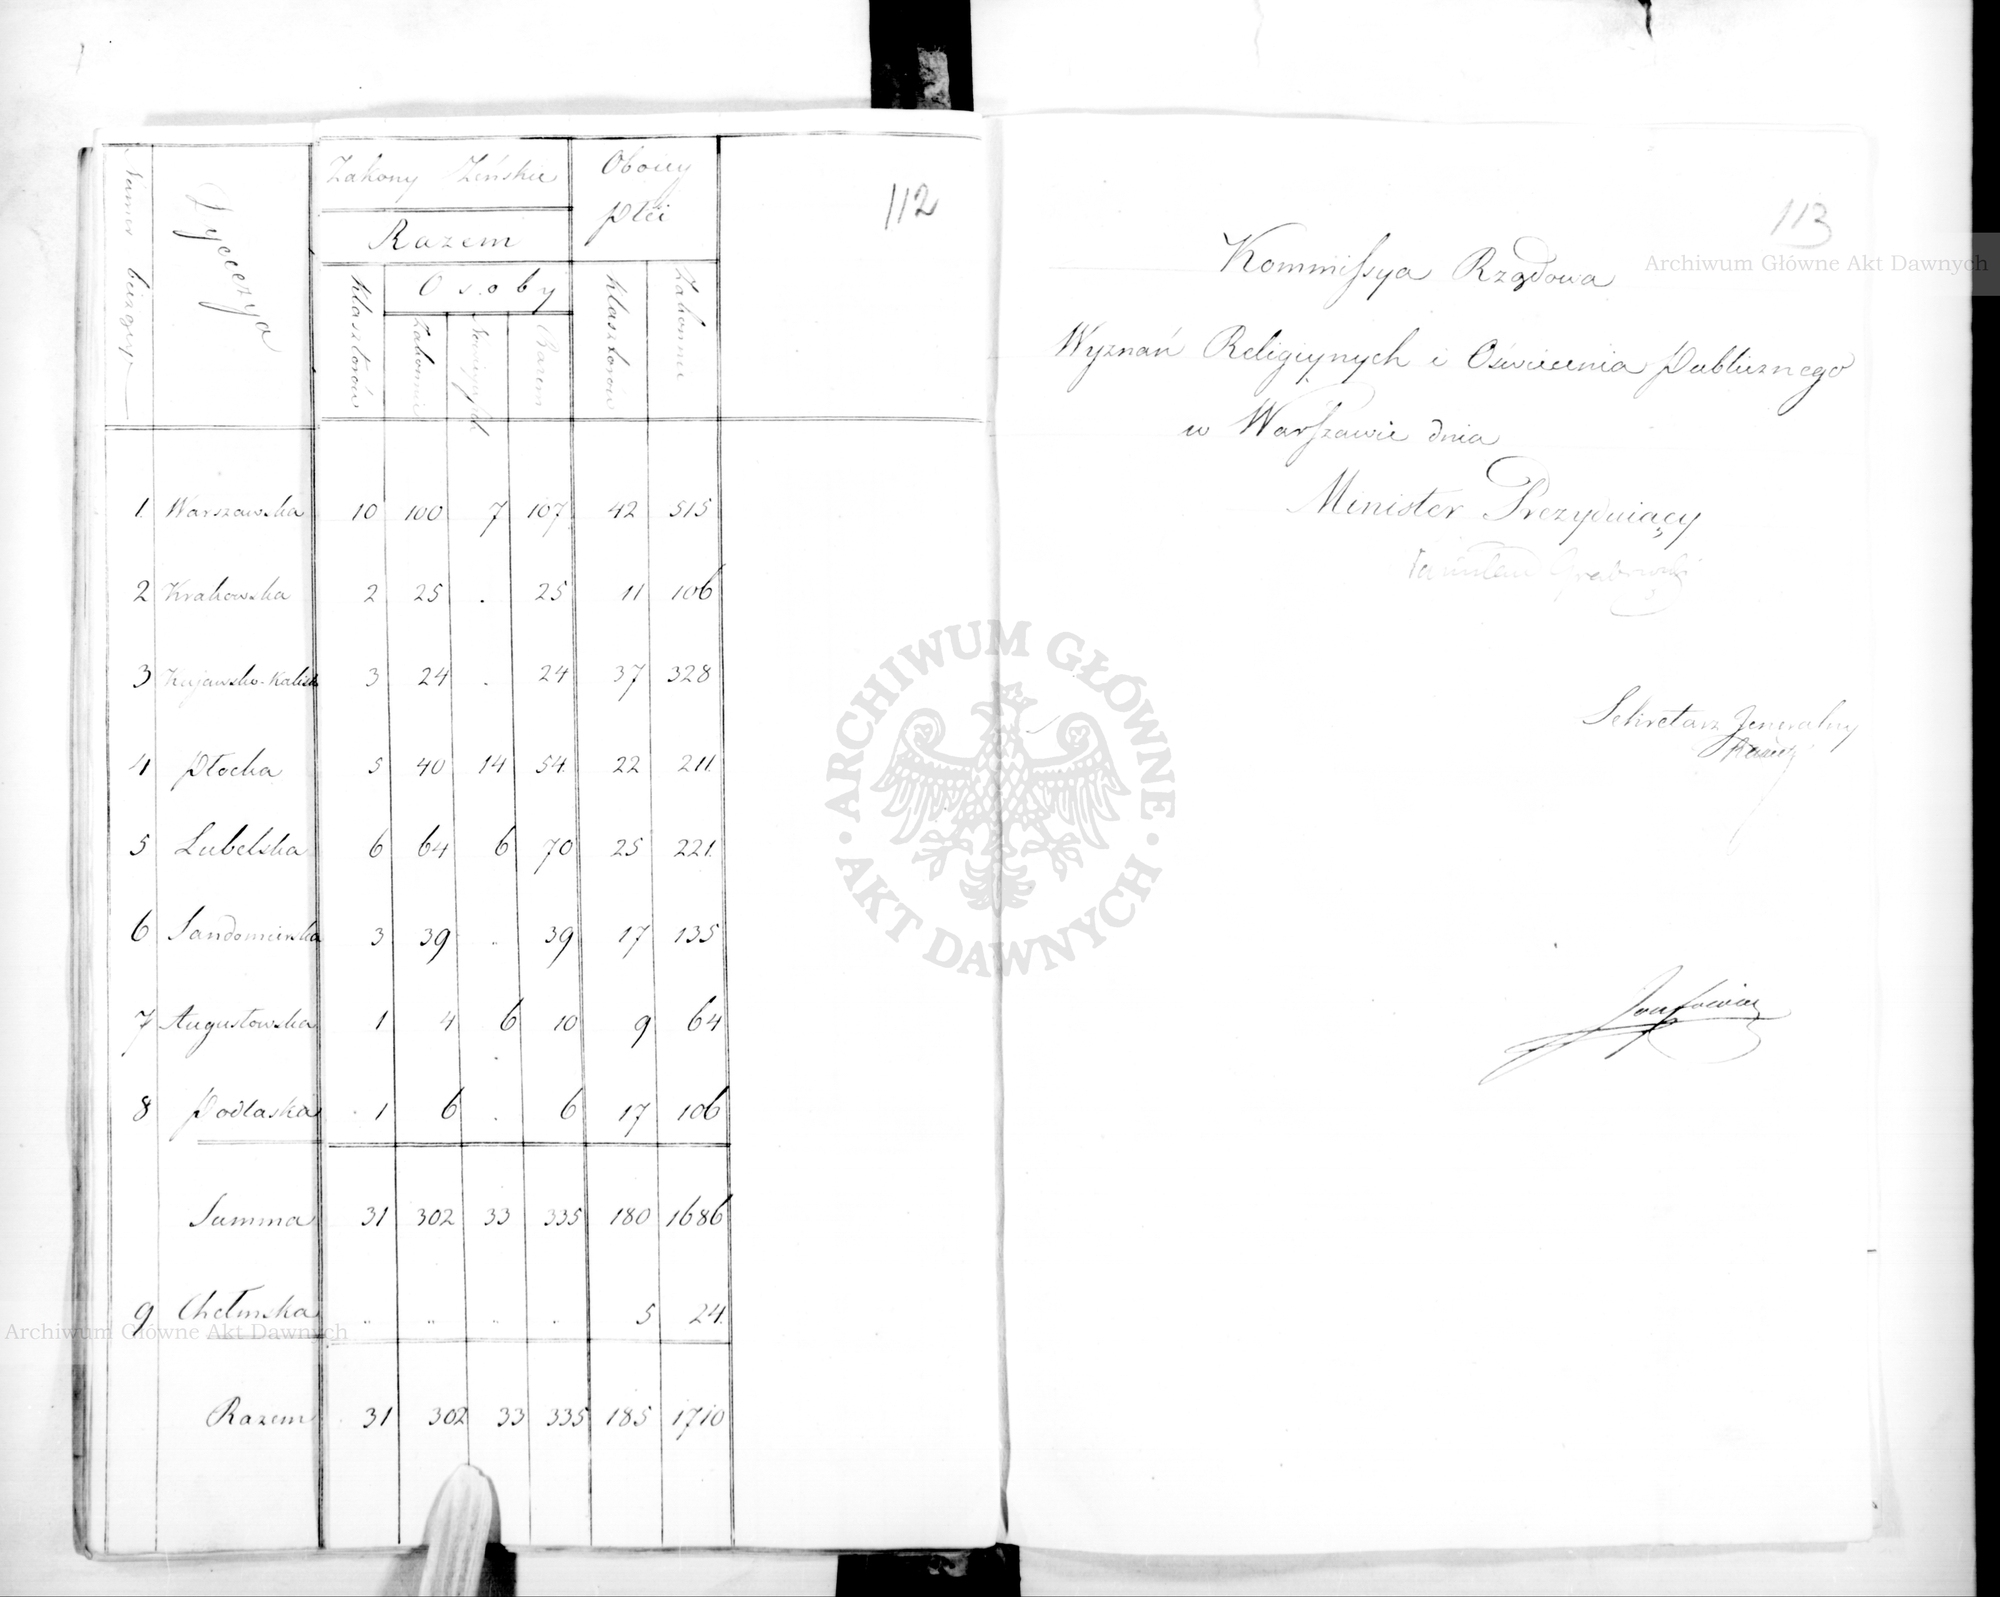 112
Numer bieżący
Dyecezya
Zakony Żeńskie
Oboiey płci
Razem
Osoby
Klasztorów
Zakonnic
Nowicyuszek
Razem
Klasztorów
Zakonni
1. Warszawska 10 100 7 107 42 515
2 Krakowska 2 25 . 25 11 106
3 Kujawsko-Kalisk 3 24 . 24 37 328
4 Płocka 5 40 14 54. 22 211.
5 Lubelska 6 64 6 70 25 221.
6 Sandomirska 3 39 .. 39 17 135
7 Augustowska 1 4 6 10 9 64
8 Podlaska 1 6 . 6 17 106
Summa 31 302 33 335 180 1686
9 Chełmska .. .. .. . 5 24.
Razem 31 302 33 335 185 1710
113
Kommissya Rządowa
Wyznań Religiynych i Oświecenia Publicznego
w Warszawie dnia
Minister Prezyduiący
Stanisław Grabowski
Sekretarz Jeneralny
Archiwum Główne Akt Dawnych
ARCHIWUM GŁÓWNE AKT DAWNYCH
Archiwum Główne Akt Dawnych